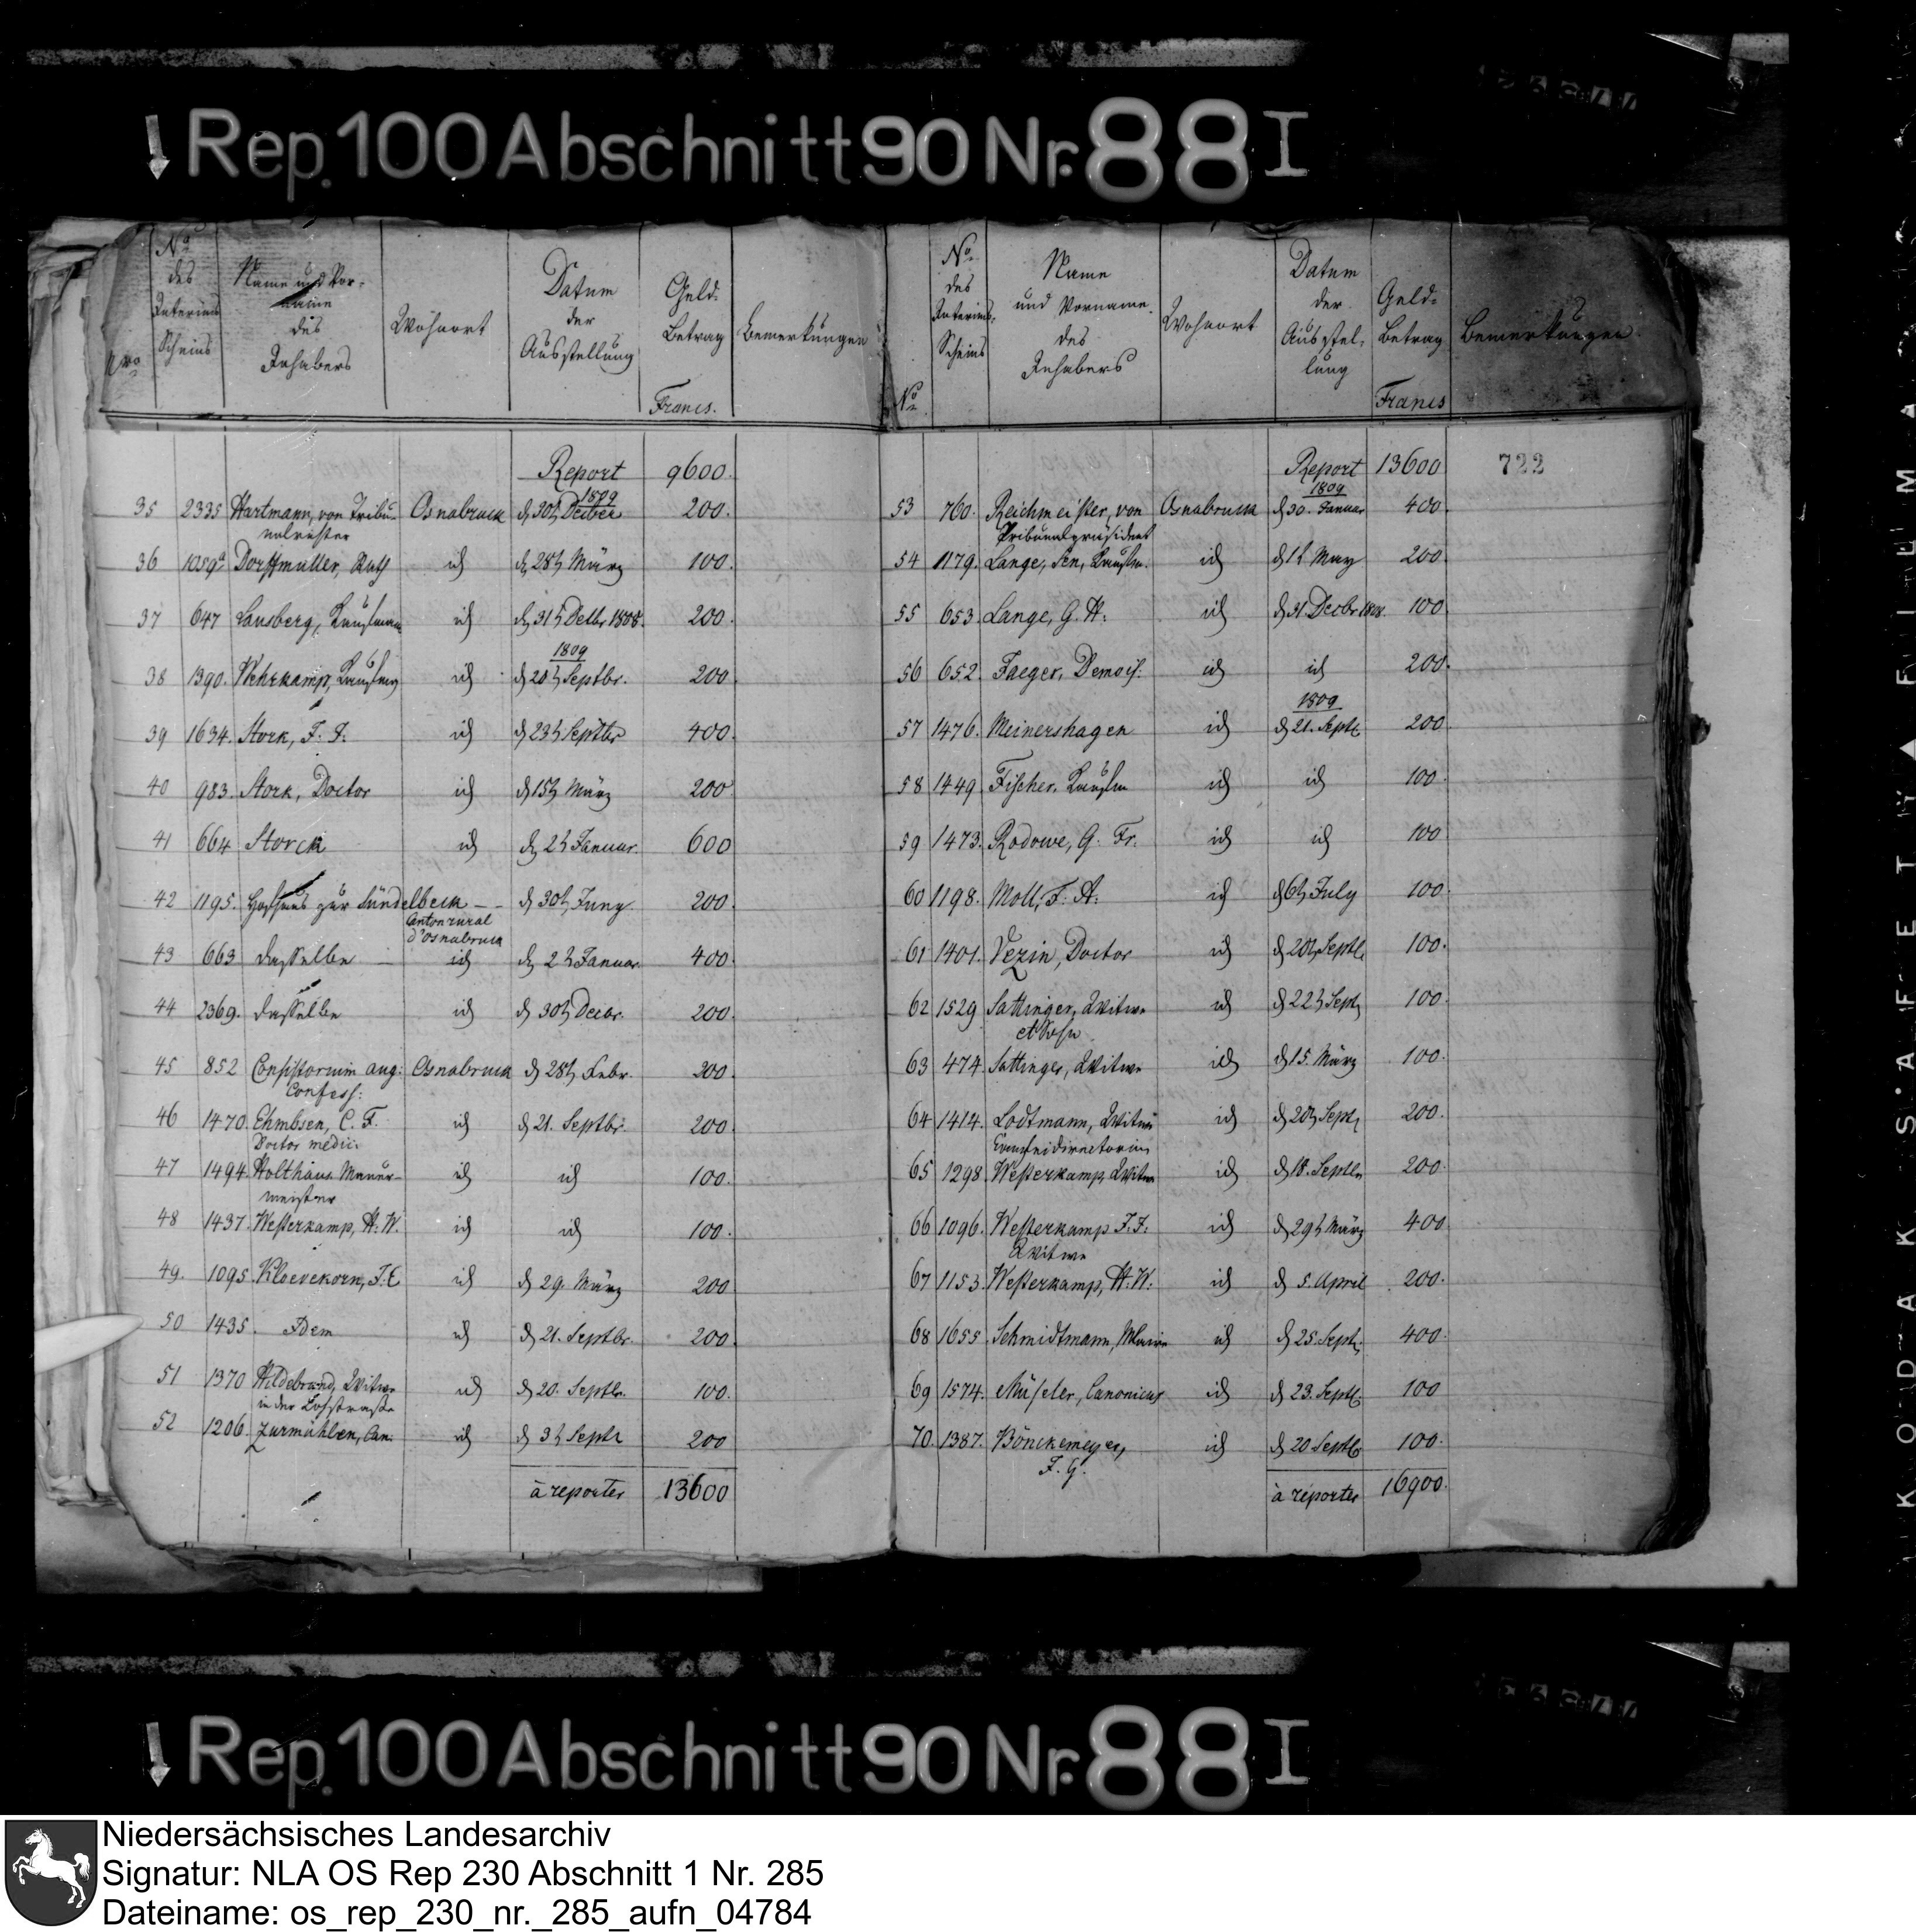 Rep. 100 Abschnitt 90 Nr. 88 I
No des Interims Scheins
Name und Vorname des Inhabers
Wohnort
Datum der Ausstellung
Geld-Betrag
Francs.
Bemerkungen
No
No des Interims-Scheins
Name und Vorname des Inhabers
Wohnort
Datum der Ausstellung
Geld-Betrag
Francs
Bemerkungen
Report 9600.
1809
35 2335 Hartmann, von Tribunalrichter Osnabruck d 30t Decber 200.
36 1059a Dorffmuller, Rath id d 28t März 100.
37 647 Lansberg, Kaufmann id d 31t Decbr 1808. 200.
1809
38 1390. Wehrkamp, Kaufman id d 20t Septbr. 200
39 1634. Stork, F. F. id d 23t Septbr 400.
40 983. Stork, Doctor id d 15t März 200
41 664 Storck id d 2t Januar. 600
42 1195. zur Sündelbeck — d 30t Juny. 200.
Canton rural d'Osnabruck
43 663 dasselbe id d 2t Januar. 400.
44 2369. dasselbe id d 30t Decbr. 200.
45 852 Consistorium aug: Confess: Osnabruck d 28t Febr. 200.
46 1470. Ehmbsen, C. F. Doctor medic: id d 21. Septbr. 200.
47 1494. Holthaus Mauermeister id id 100.
48 1437. Westerkamp, H. W. id id 100.
49. 1095. Kloevekorn, J. C. id d 29. März 200
50 1435. Idem id d 21. Septbr. 200.
51 1370 Hildebrand, Witwe in der Lohstrasse id d 20. Septbr. 100.
52 1206. Zurmühlen, Can. id d 3t Septr 200
à reporter 13600
Report 13600
722
1809
53 760. Reichmeister, von Tribunalpräsident Osnabruck d 30. Januar 400.
54 1179. Lange, Sen, Kaufm. id d 1t May 200
55 653. Lange, G. H. id d 31 Decbr 1808. 100
56 652. Jaeger, Demois. id id 200.
1809
57 1476. Meinershagen id d 21. Septb 200
58 1449 Fischer, Kaufm id id 100.
59 1473. Rodowe, G. Fr. id id 100
60 1198. Moll, F. A. id d 6t July 100.
61 1401. Vezin, Doctor id d 20t Septb. 100.
62 1529 Sattinger, Witwe et Sohn id d 22t Sept 100.
63 474. Sattinger, Witwe id d 15. März 100.
64 1414. Lodtmann, Witwe id d 20t Sept 200.
65 1298. Westerkamp, Witwe id d 18. Septbr 200.
66 1096. Westerkamp J. F. Witwe id d 29t März 400
67 1153. Westerkamp, H. W. id d 5. April 200.
68 1655 Schmidtmann, id d 25. Sept. 400.
69 1574. Müseler, Canonicus id d 23. Septb 100
70. 1387. Bönckemeyer, F. G. id d 20 Septb 100.
à reporter 16900.
Rep. 100 Abschnitt 90 Nr. 88 I
Niedersächsisches Landesarchiv
Signatur: NLA OS Rep 230 Abschnitt 1 Nr. 285
Dateiname: os_rep_230_nr._285_aufn_04784